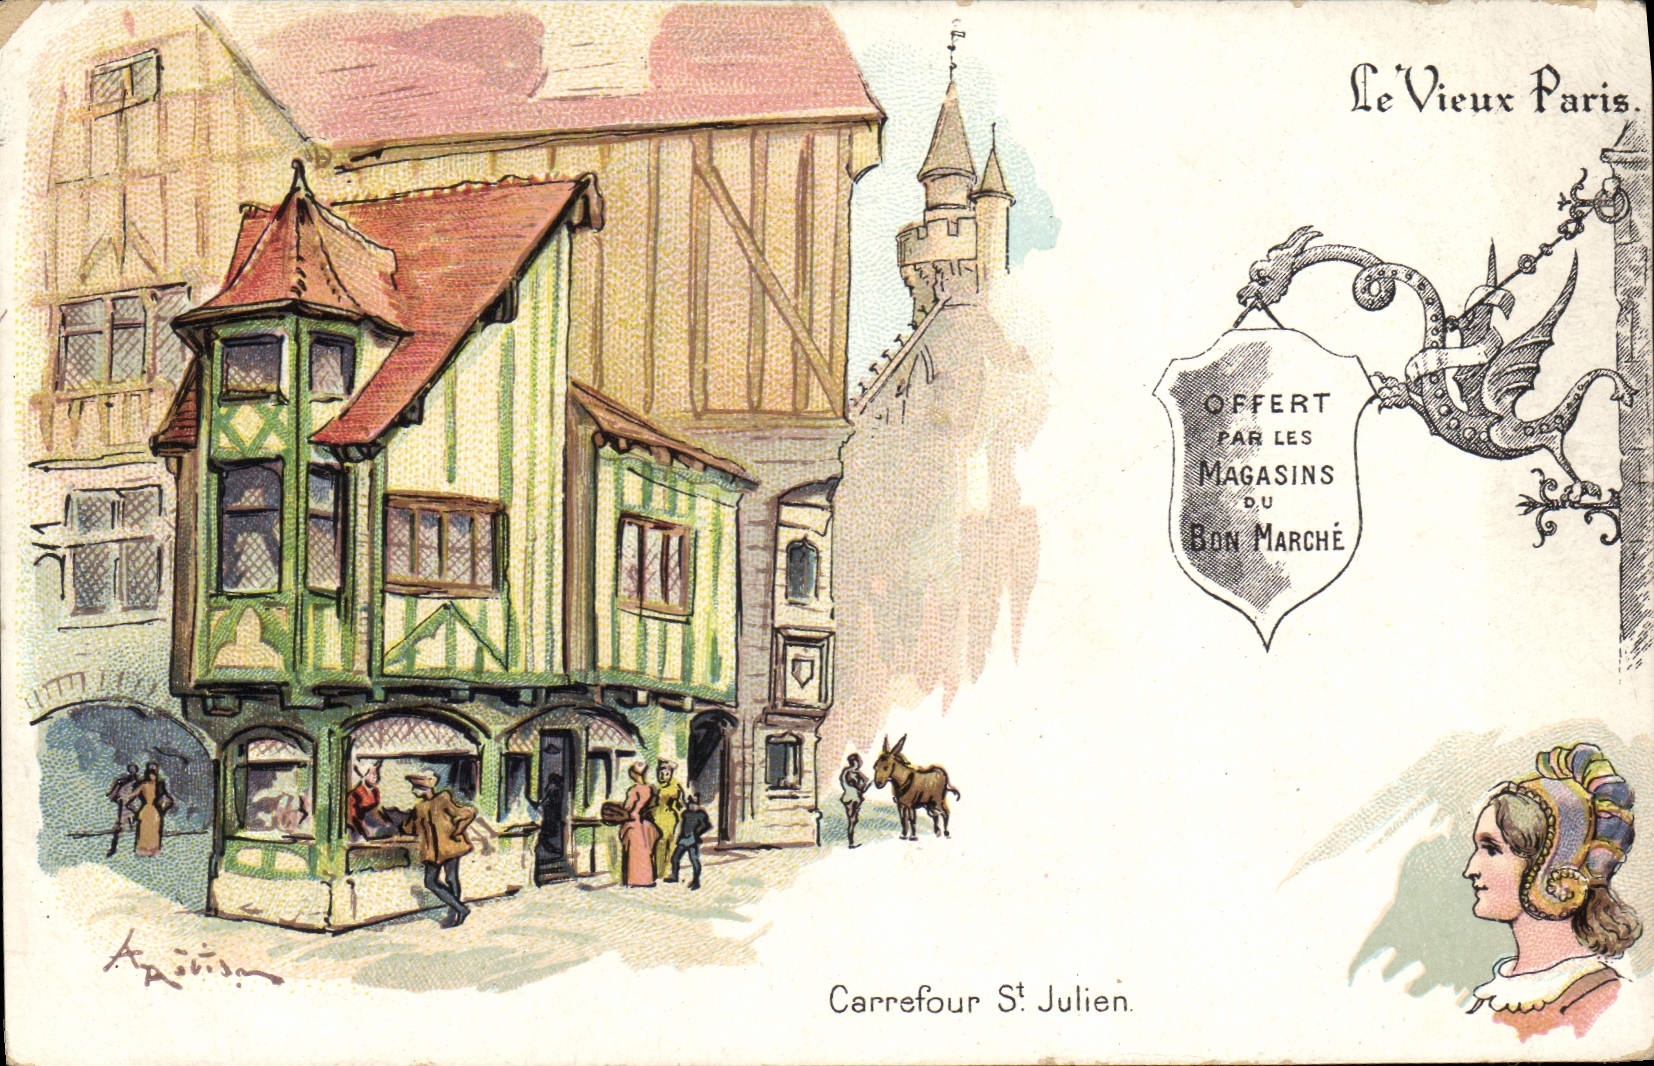 Le Vieux Paris.
OFFERT
PAR LES
MAGASINS
DU
BON MARCHÉ
Carrefour St. Julien.
A. Robida